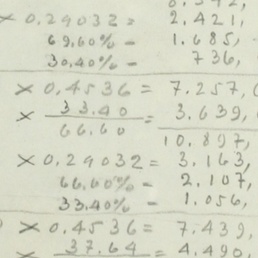 × 0.29032 = 2.421,
69.60% - 1.685,
30.40% - 736,
× 0.4536 = 7.257,
× 33.40 / 66.60 = 3.639,
10.897,
× 0.29032 = 3.163,
66.60% - 2.107,
33.40% - 1.056,
× 0.4536 = 7.439,
× 37.64 = 4.490,